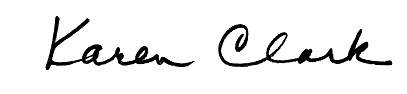 Karen Clark